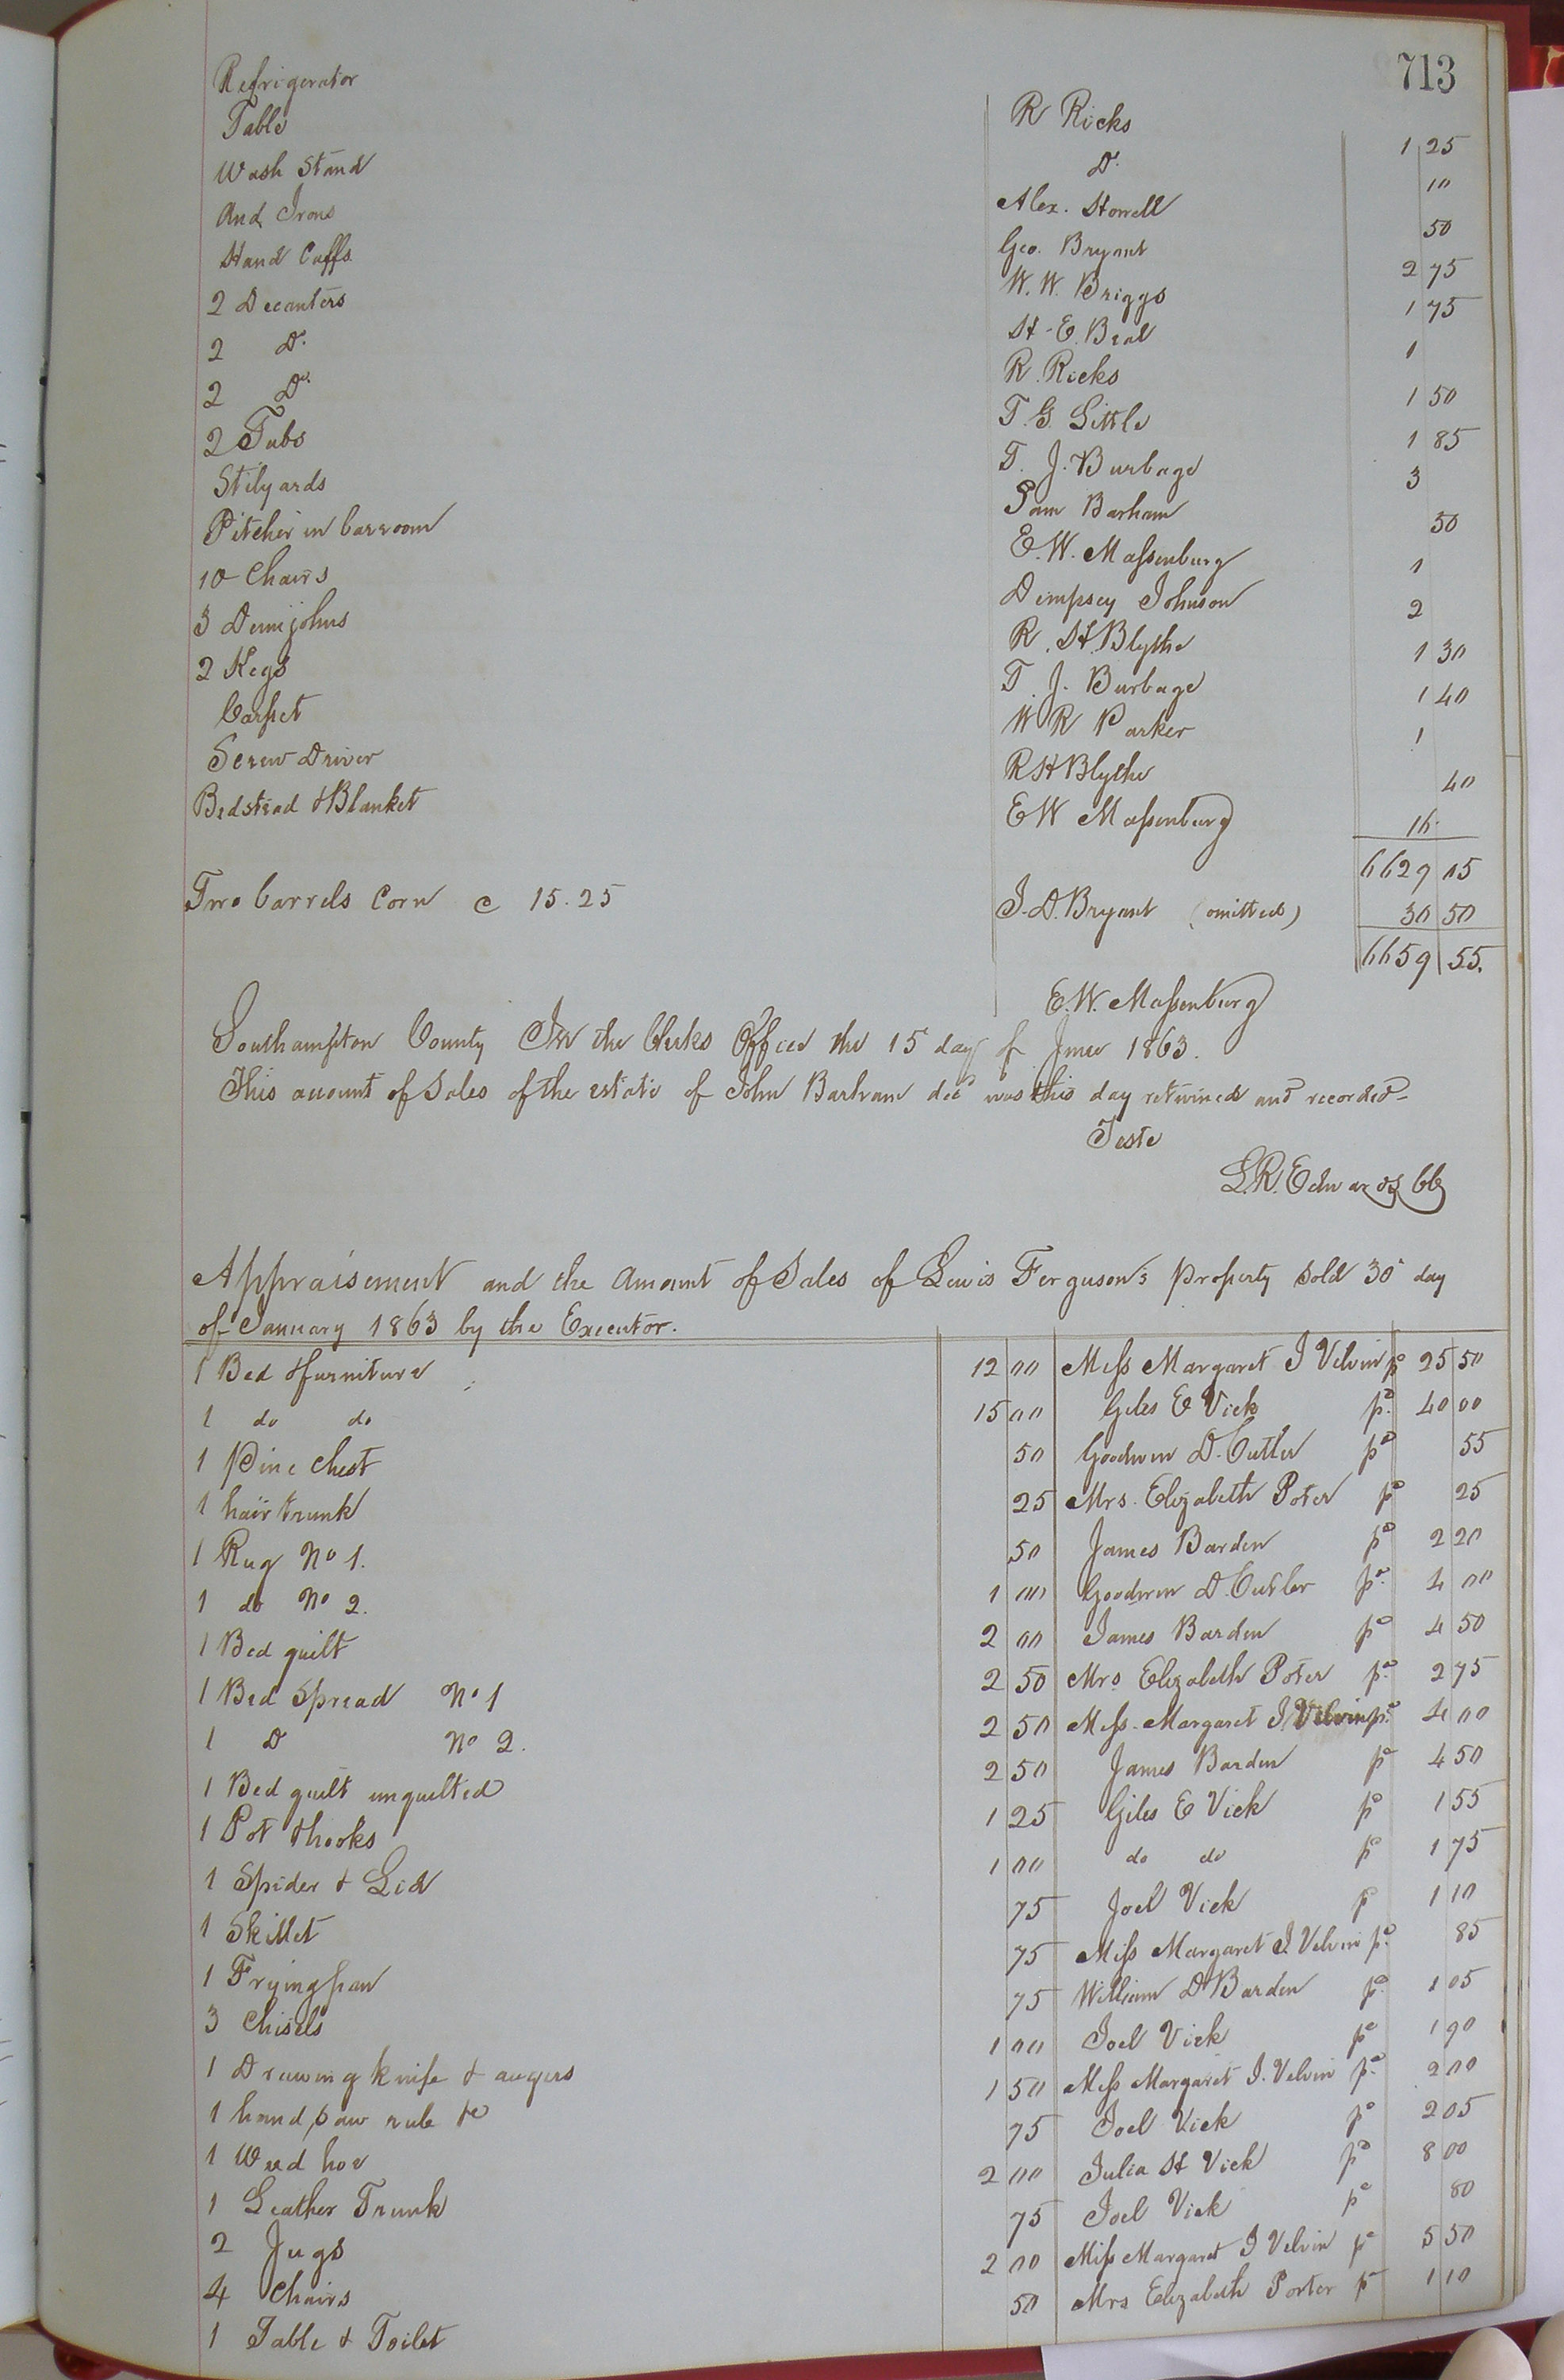 713
Refrigerator R Ricks 1 25
Table Do. 10
Wash Stand Alex. Howell 50
And Irons Geo. Bryant 2 75
Hand Cuffs W. W. Briggs 1 75
2 Decanters H. E. Beal 1
2 Do. R. Ricks 1 50
2 Do. T. G. Little 1 85
2 Tubs T. J. Burbage 3
Stilyards Sam Barham 50
Pitcher in barroom E. W. Massenburg 1
10 Chairs Dempsey Johnson 2
3 Demijohns R. H. Blythe 1 30
2 Kegs T. J. Burbage 1 40
Carpet W R Parker 1
Screw Driver R H Blythe 40
Bedstead & Blanket E W Massenburg 16
6629 05
Two barrels Corn @ 15.25 J. D. Bryant (omitted) 30 50
6659 55.
E. W. Massenburg
Southampton County In the Clerks Office the 15 day of June 1863.
This account of Sales of the estate of John Barham decd was this day returned and recorded
Teste
L. R. Edwards CC
Appraisement and the Amount of Sales of Lewis Ferguson's Property Sold 30 day
of January 1863 by the Executor.
1 Bed & furniture 12 00 Miss Margaret J Velvin pd 25 50
1 do do 15 00 Giles E Vick pd. 40 00
1 Pine Chest 50 Goodwin D. Cutler pd 55
1 hair trunk 25 Mrs. Elizabeth Poter pd 25
1 Rug No 1. 50 James Barden pd 2 20
1 do No 2. 1 00 Goodwin D. Cutler pd. 4 00
1 Bed quilt 2 00 James Barden pd 4 50
1 Bed Spread No 1 2 50 Mrs Elizabeth Poter pd 2 75
1 D No 2. 2 50 Miss Margaret J Velvin pd. 4 00
1 Bed quilt unquilted 2 50 James Barden pd 4 50
1 Pot & hooks 1 25 Giles E Vick pd 1 55
1 Spider & Lid 1 00 do do pd 1 75
1 Skillet 75 Joel Vick pd 1 10
1 Fryingpan 75 Miss Margaret J. Velvin pd. 85
3 Chisels 75 William D Barden pd 1 05
1 Drawing knife & augers 1 00 Joel Vick pd 1 90
1 hand saw rule &c 1 50 Miss Margaret J. Velvin pd. 2 00
1 Weed hoe 75 Joel Vick pd 2 05
1 Leather Trunk 2 00 Julia H Vick pd 8 00
2 Jugs 75 Joel Vick pd 80
4 Chairs 2 00 Miss Margaret J Velvin pd 5 50
1 Table & Toilet 50 Mrs Elizabeth Porter pd 1 10